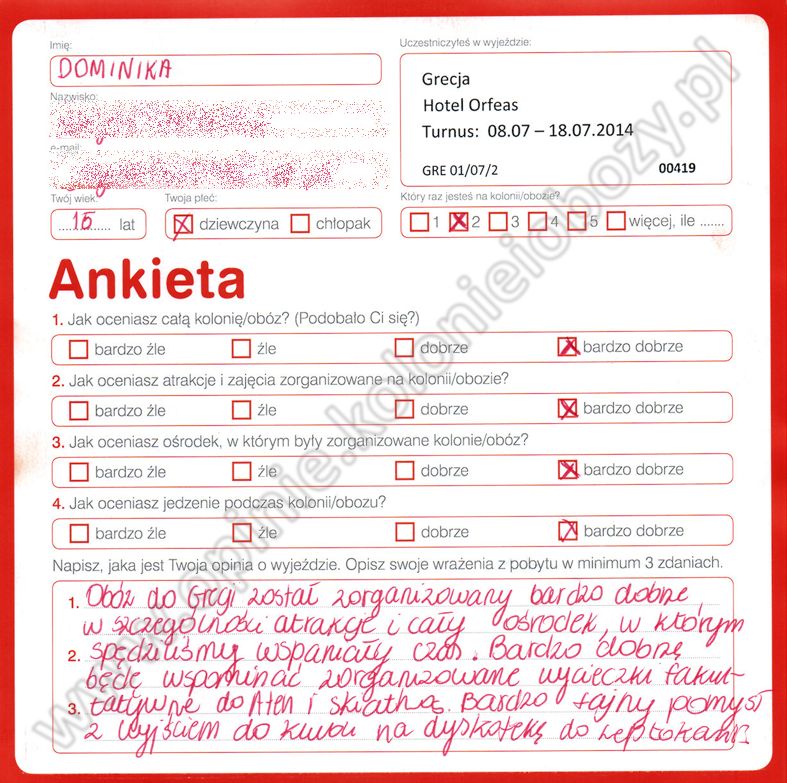 Imię:
DOMINIKA
Nazwisko:
e-mail:
Twój wiek:
15 lat
Twoja płeć:
dziewczyna chłopak
Uczestniczyłeś w wyjeździe:
Grecja
Hotel Orfeas
Turnus: 08.07 – 18.07.2014
GRE 01/07/2 00419
Który raz jesteś na kolonii/obozie?
1 2 3 4 5 więcej, ile .......
Ankieta
1. Jak oceniasz całą kolonię/obóz? (Podobało Ci się?)
bardzo źle źle dobrze bardzo dobrze
2. Jak oceniasz atrakcje i zajęcia zorganizowane na kolonii/obozie?
bardzo źle źle dobrze bardzo dobrze
3. Jak oceniasz ośrodek, w którym były zorganizowane kolonie/obóz?
bardzo źle źle dobrze bardzo dobrze
4. Jak oceniasz jedzenie podczas kolonii/obozu?
bardzo źle źle dobrze bardzo dobrze
Napisz, jaka jest Twoja opinia o wyjeździe. Opisz swoje wrażenia z pobytu w minimum 3 zdaniach.
1. Obóz do Grecji został zorganizowany bardzo dobrze,
w szczególności atrakcje i cały ośrodek, w którym
2. spędziliśmy wspaniały czas. Bardzo dobrze
będę wspominać zorganizowane wycieczki fakul-
3. tatywne do Aten i Skiathos. Bardzo fajny pomysł
z wyjściem do klubu na dyskotekę do Leptokarii
www.opinie.kolonieiobozy.pl